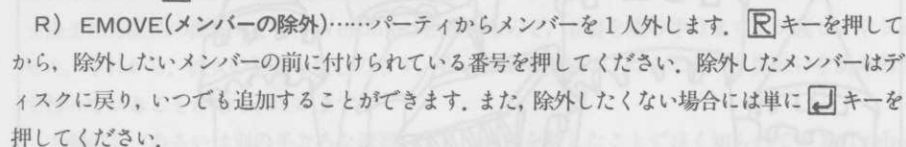 R) EMOVE(メンバーの除外)……パーティからメンバーを1人外します. Rキーを押して
から, 除外したいメンバーの前に付けられている番号を押してください. 除外したメンバーはデ
ィスクに戻り, いつでも追加することができます. また, 除外したくない場合には単に↵キーを
押してください.